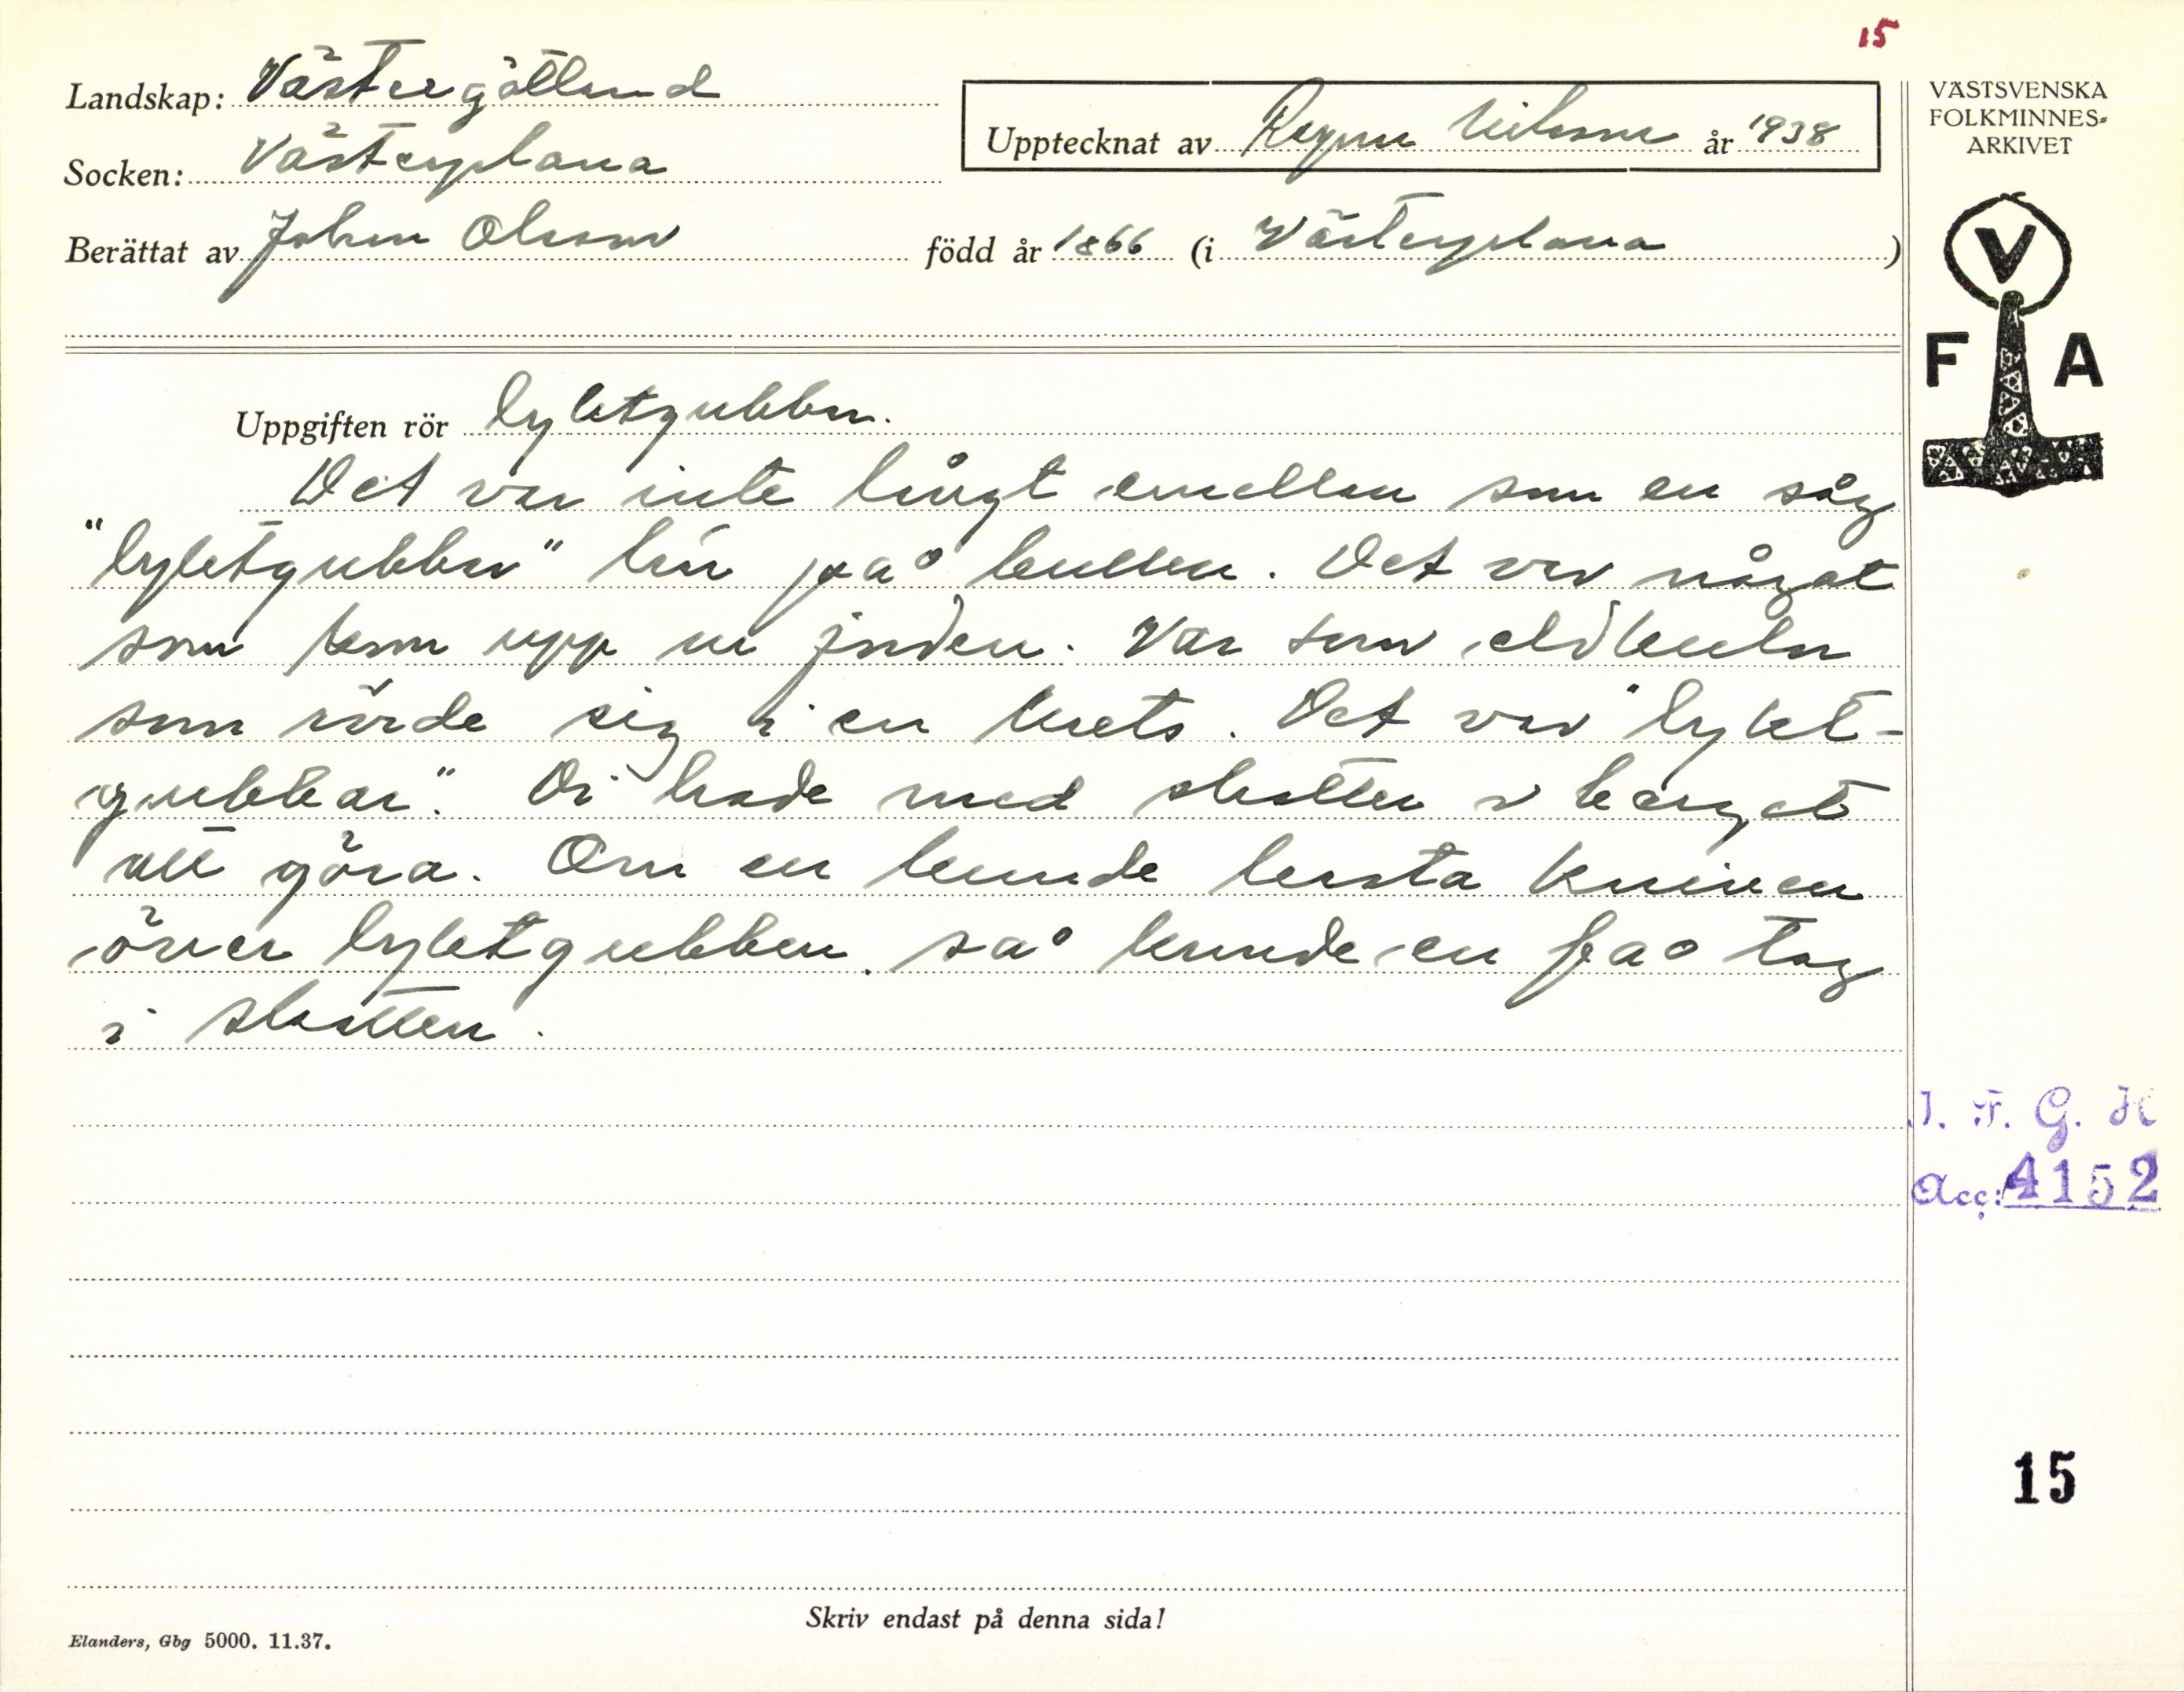 15
Landskap: Västergötland
Socken: Västerplana
Upptecknat av Ragnar Nilsson år 1938
Berättat av Johan Olsson född år 1866 (i Västerplana)
VÄSTSVENSKA
FOLKMINNES-
ARKIVET
V
F A
Uppgiften rör lyktgubbar.
Det var inte långt emellan som en såg
"lyktgubbar" här på kullen. Det var något
som kom upp ur jorden. Var som eldkulor
som rörde sig i en krets. Det var "lykt-
gubbar". Di hade med skatten i berget
att göra. Om en kunde kasta kniven
över lyktgubben så kunde en få tag
i skatten.
I. F. G. H
Acc: 4152
15
Skriv endast på denna sida!
Elanders, Gbg 5000. 11.37.